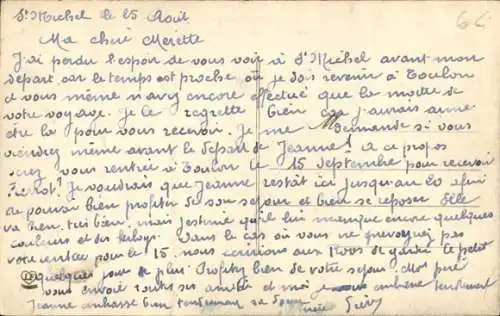 St Michel le 25 Août
66
Ma chère Merette
J'ai perdu l'espoir de vous voir à St Michel avant mon
départ car le temps est proche où je dois revenir à Toulon
et vous même n'avez encore effectué que la moitié de
votre voyage. Je le regrette bien car j'aurais aimé
être là pour vous recevoir. Je me demande si vous
viendrez même avant le départ de Jeanne! A ce propos
serez vous rentrée à Toulon le 15 Septembre pour recevoir
Pierrot? Je voudrais que Jeanne restât ici jusqu'au 20 afin
de pouvoir bien profiter de son séjour et bien se reposer. Elle
va bien, très bien, mais j'estime qu'il lui manque encore quelques
couleurs et des kilogs. Dans le cas où vous ne prévoyez pas
votre rentrée pour le 15, nous écririons aux de garder le petit
quelques jours de plus. Profitez bien de votre séjour. Mon père
vous envoie toutes ses amitiés et moi je vous embrasse tendrement
Jeanne embrasse bien tendrement sa